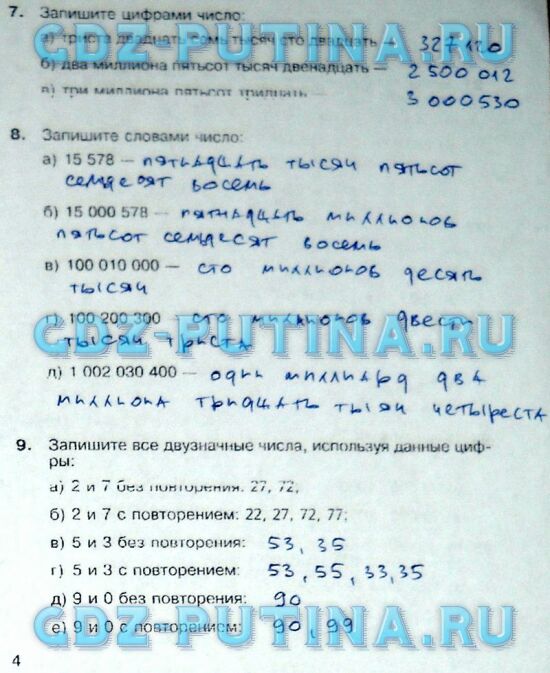 7. Запишите цифрами число:
а) триста двадцать семь тысяч сто двадцать — 327 120
б) два миллиона пятьсот тысяч двенадцать — 2 500 012
в) три миллиона пятьсот тридцать — 3 000 530
GDZ-PUTINA.RU
8. Запишите словами число:
а) 15 578 — пятнадцать тысяч пятьсот
семьдесят восемь
б) 15 000 578 — пятнадцать миллионов
пятьсот семьдесят восемь
в) 100 010 000 — сто миллионов десять
тысяч
г) 100 200 300 — сто миллионов двести
тысяч триста
GDZ-PUTINA.RU
д) 1 002 030 400 — один миллиард два
миллиона тридцать тысяч четыреста
9. Запишите все двузначные числа, используя данные циф-
ры:
а) 2 и 7 без повторения: 27, 72;
б) 2 и 7 с повторением: 22, 27, 72, 77;
в) 5 и 3 без повторения: 53, 35
г) 5 и 3 с повторением: 53, 55, 33, 35
д) 9 и 0 без повторения: 90
е) 9 и 0 с повторением: 90, 99
GDZ-PUTINA.RU
4